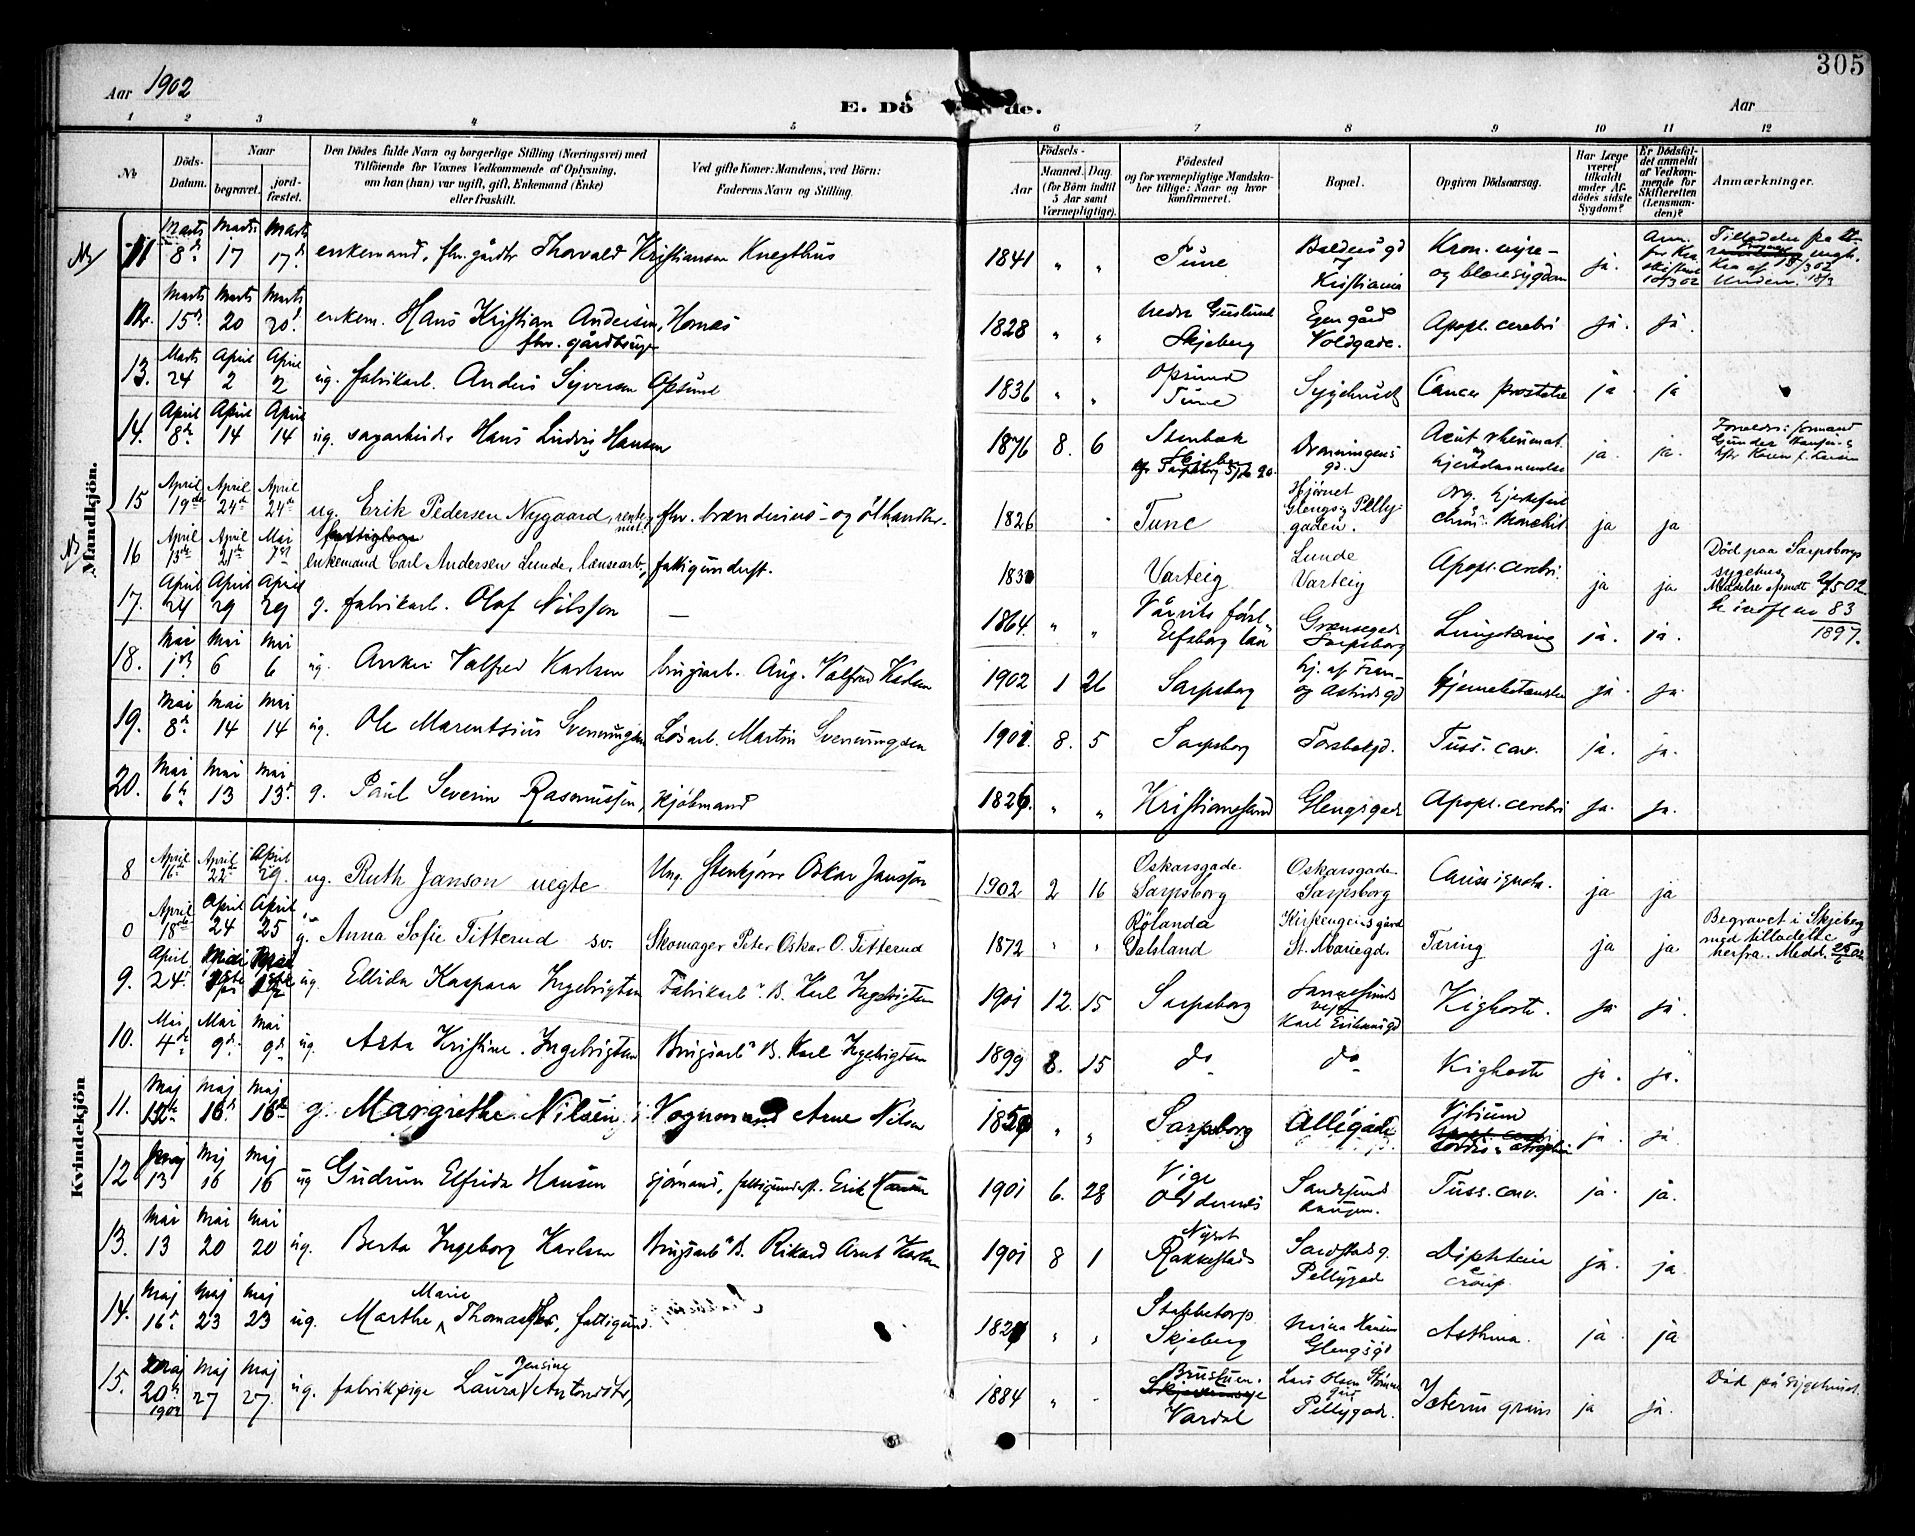 305
Aar 1902
E. Dö de.
Aar
1 2 3 4 5 6 7 8 9 10 11 12
No
Döds-Datum.
Naar
begravet.
jord-fæstet.
Den Dödes fulde Navn og borgerlige Stilling (Næringsvei) med
Tilföiende for Voxnes Vedkommende af Oplysning,
om han (hun) var ugift, gift, Enkemand (Enke)
eller fraskilt.
Ved gifte Koner: Mandens, ved Börn:
Faderens Navn og Stilling.
Födsels-
Aar
Maaned. Dag
(for Börn indtil
5 Aar samt
Værnepligtige).
Födested
og for værnepligtige Mandska-
ber tillige: Naar og hvor
konfirmeret.
Bopæl.
Opgiven Dödsaarsag.
Har Læge
været
tilkaldt
under Af-
dödes sidste
Sygdom?
Er Dödsfal-
det anmeldt
af Vedkom-
mende for
Skifteretten
(Lensman-
den)?
Anmærkninger.
Mandkjön.
11 Marts 8de Marts 17 Marts 17de enkemand, fhv. gårdbr Thorvald Kristiansen Knegthus 1841 " " Tune Baldersgd 7 Kristiania Kron. nyre- og blæresygdom ja.
12. Marts 15de Marts 20 Marts 20de enkem. Hans Kristian Andersen, Hornæs fhv. gårdbruger 1828 " " nedre Guslund Skjeberg Egen gård Voldgade. Apopl. cerebri ja. ja.
13. Marts 24 April 2 April 2 ug. fabrikarb. Anders Syversen Opsund 1836 " " Opsund Tune Sygehuset Cancer prostatæ ja ja
14. April 8de April 14 April 14 ug. sagarbeider Hans Ludvig Hansen 1876 8. 6 Stenbæk Skjeberg Dronningensgd. Acut rheumat. og hjertelammelse ja. ja.
15 April 19de April 24de April 24de ug. Erik Pedersen Nygaard, fhv. brændevins- og ölhandler. 1826 " Tune Hjörnet Glengsg Pellygaden. Org. hjertefeil chron. bronchit ja ja
16 April 15de April 21de Mai 7de enkemand Carl Andersen Lunde, lænsearb., fattigunderst. 1830 Varteig Lunde Varteig Apopl. cerebri. ja ja. Död paa Sarpsborgs sygehus
17. April 24 April 29 April 29 g. fabrikarb. Olof Nilsson — 1864. " " Elfsborg län Grænsegad Sarpsborg Lungetæring ja. ja. 83 1897.
18. Mai 1ste Mai 6 Mai 6 ug. Anker Valfred Karlsen brugsarb. Aug. Valfred Karlsen 1902 1 26 Sarpsborg hj. af Fram- og Astridsgd Hjernebetændelse ja. ja.
19. Mai 8de Mai 14 Mai 14 ug. Ole Marentsius Svenningsen Lösarb. Martin Svenningsen 1901. 8. 5 Sarpsborg Torsbækgd. Tuss. conv. ja. ja.
20. Mai 6te Mai 13 Mai 13de g. Paul Severin Rasmussen, kjöbmand 1826. " " Kristianssund Glengsgad Apopl. cerebri ja. ja.
Kvindekjön
8 April 16de April 22de April 29. ug. Ruth Janson uegte Ung. Stenkjörer Oskar Jansson 1902 2 16 Oskarsgade. Sarpsborg Oskarsgade Sarpsborg Causa ignota. ja ja
0 April 18de April 24 April 25 g. Anna Sofie Titterud sv. Skomager Peter Oskar O. Titterud 1872 " " Rölanda Dalsland Kirkeengensgård St. Mariegd. Tæring ja ja. Begravet i Skjeberg med tilladelse herfra. Medd.
9. April 24. ug. Ellida Kaspara Ingebrigtsen Fabrikarb. B. Karl Ingebrigtsen 1901 12. 15 Sarpsborg Sannesund ved Karl Eriksensgd Kighoste. ja ja.
10. Mai 4de Mai 9de Mai 9de ug. Asta Kristine Ingebrigtsen Brugsarb. B. Karl Ingebrigtsen 1899 8. 15 do do Kighoste ja. ja.
11. Maj 12te Maj 16de Maj 16de g. Margrethe Nilsen Vognmand Arne Nilsen " " Sarpsborg Allégade Vitium cordis ja. ja.
12 Maj 13 Maj 16 Maj 16 ug Gudrun Elfrida Hansen sjömand, fattigunderst. Erik Hansen 1901 6. 28 Sandesund Tuss. conv. ja. ja.
13. Mai 13 Mai 20 Mai 20 ug. Berta Ingeborg Karlsen Brugsarb. B. Rikard Arnt Karlsen 1901 8 1 Rakkestad Sandstadg. Pellygad Diphteri Croup. ja. ja.
14. Maj 16de Maj 23 Maj 23 ug. Marthe Marie Thomasdtr, fattigund. " " Stabbetorp Skjeberg Glengsgd Asthma. ja. ja
15. Maj 20de 1902 Maj 27 Maj 27. ug. fabrikpige Laura Jensine Antonsdtr, 1884 " " Vardal Lars Olsen Pellygade. Icterus gravis ja ja. Död på sygehuset.